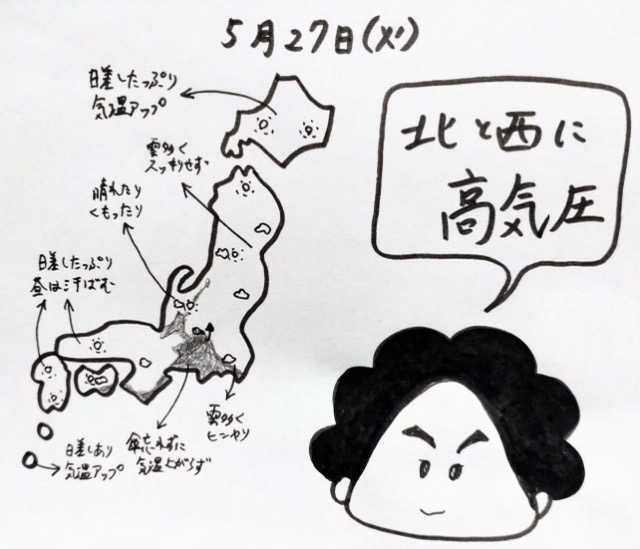 5月27日(火)
日差したっぷり
気温アップ
北と西に
高気圧
雲多く
スッキリせず
晴れたり
くもったり
日差したっぷり
昼は汗ばむ
雲多く
ヒンヤリ
傘忘れずに
気温上がらず
日差しあり
気温アップ